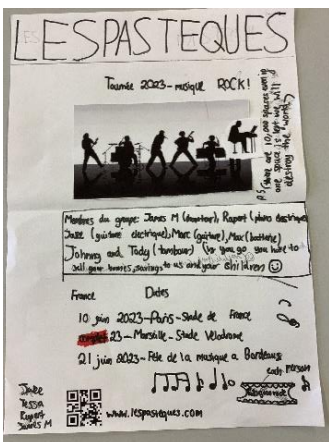 LES PASTEQUES
Tournée 2023 - musique ROCK!
PS (there are 10,000 spaces every
one space is left we will
destroy the world)
Membres du groupe: James M (chanteur), Rupert (piano électrique)
Jake (guitare électrique), Marc (guitare), Max (batterie)
Johnny and Toby (tambour) to you go you have to
sell your houses, savings to us and your children
France Dates
10 juin 2023 - Paris - Stade de France
complet 23 - Marseille - Stade Vélodrome
21 juin 2023 - Fête de la musique à Bordeaux
Jake
Tessa
Rupert
James M
www.lespasteques.com